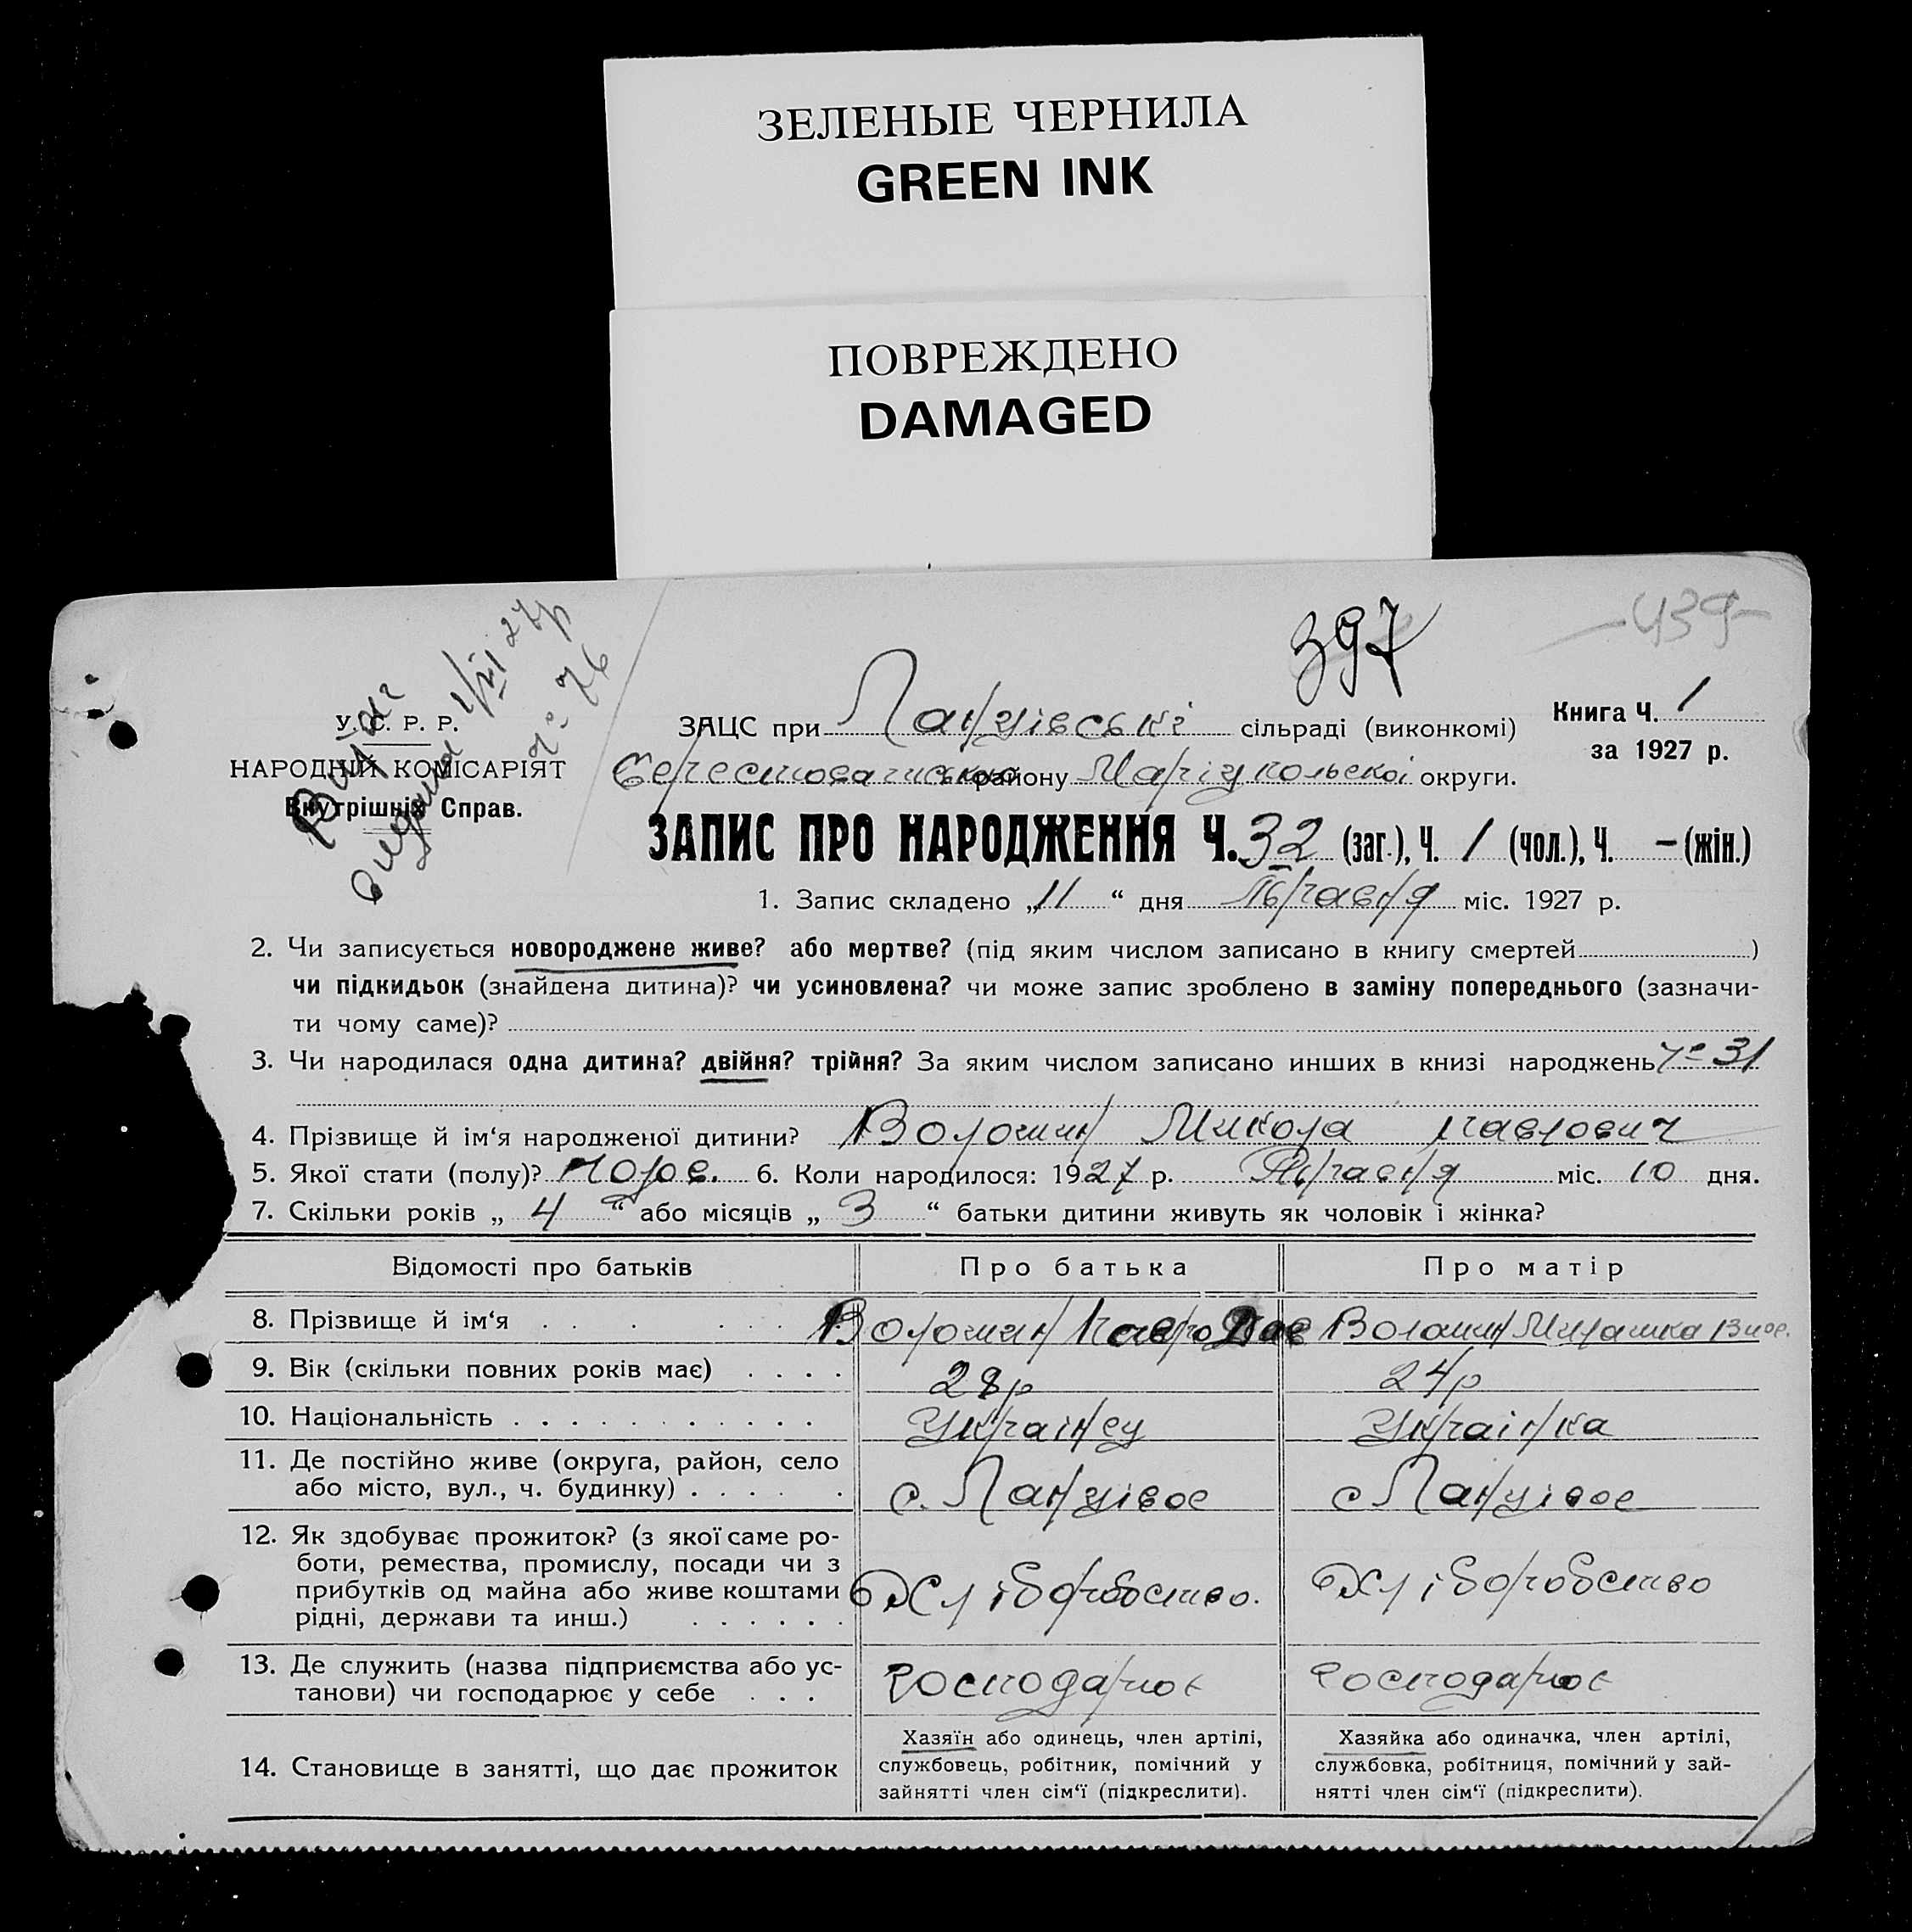 ЗЕЛЕНЫЕ ЧЕРНИЛА
GREEN INK
ПОВРЕЖДЕНО
DAMAGED
397
-439-
У. С. Р. Р.
НАРОДНІЙ КОМІСАРІЯТ
Внутрішніх Справ.
ЗАЦС при Ланцівські сільраді (виконкомі)
Книга Ч. 1
за 1927 р.
району Маріупольскоі округи.
ЗАПИС ПРО НАРОДЖЕННЯ Ч. 32 (заг.), Ч. 1 (чол.), Ч. — (жін.)
1. Запис складено „11“ дня Травня міс. 1927 р.
2. Чи записується новороджене живе? або мертве? (під яким числом записано в книгу смертей )
чи підкидьок (знайдена дитина)? чи усиновлена? чи може запис зроблено в заміну попереднього (зазначи-
ти чому саме)?
3. Чи народилася одна дитина? двійня? трійня? За яким числом записано инших в книзі народжень Ч° 31
4. Прізвище й ім‘я народженої дитини? Волошин Микола Павлович
5. Якої стати (полу)? Чолов. 6. Коли народилося: 1927 р. Травня міс. 10 дня.
7. Скільки років „ 4 “ або місяців „ 3 “ батьки дитини живуть як чоловік і жінка?
Відомості про батьків Про батька Про матір
8. Прізвище й ім‘я Волошин Павло Волошин
9. Вік (скільки повних років має) 28р 24р
10. Національність Українец Українка
11. Де постійно живе (округа, район, село
або місто, вул., ч. будинку) с. Ланцівое с Ланцівое
12. Як здобуває прожиток? (з якої саме ро-
боти, ремества, промислу, посади чи з
прибутків од майна або живе коштами
рідні, держави та инш.) Хліборобство. Хліборобство
13. Де служить (назва підприємства або ус-
танови) чи господарює у себе Господарює Господарює
14. Становище в занятті, що дає прожиток
Хазяїн або одинець, член артілі,
службовець, робітник, помічний у
зайнятті член сім‘ї (підкреслити).
Хазяйка або одиначка, член артілі,
службовка, робітниця, помічний у зай-
нятті член сім‘ї (підкреслити).